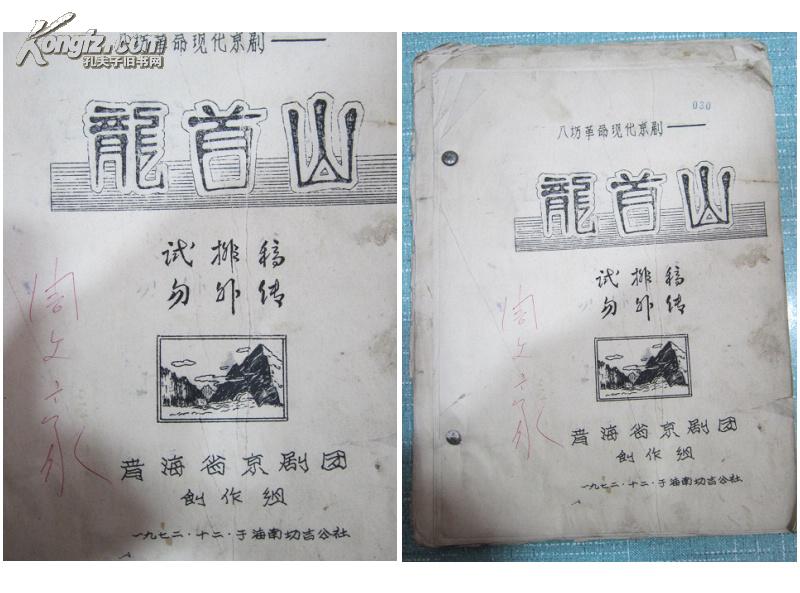 Kongfz.com
孔夫子旧书网
八场革命现代京剧——
龍首山
试排稿
勿外传
青海省京剧团
创作组
一九七二·十二·于海南切吉公社
030
八场革命现代京剧——
龍首山
试排稿
勿外传
青海省京剧团
创作组
一九七二·十二·于海南切吉公社